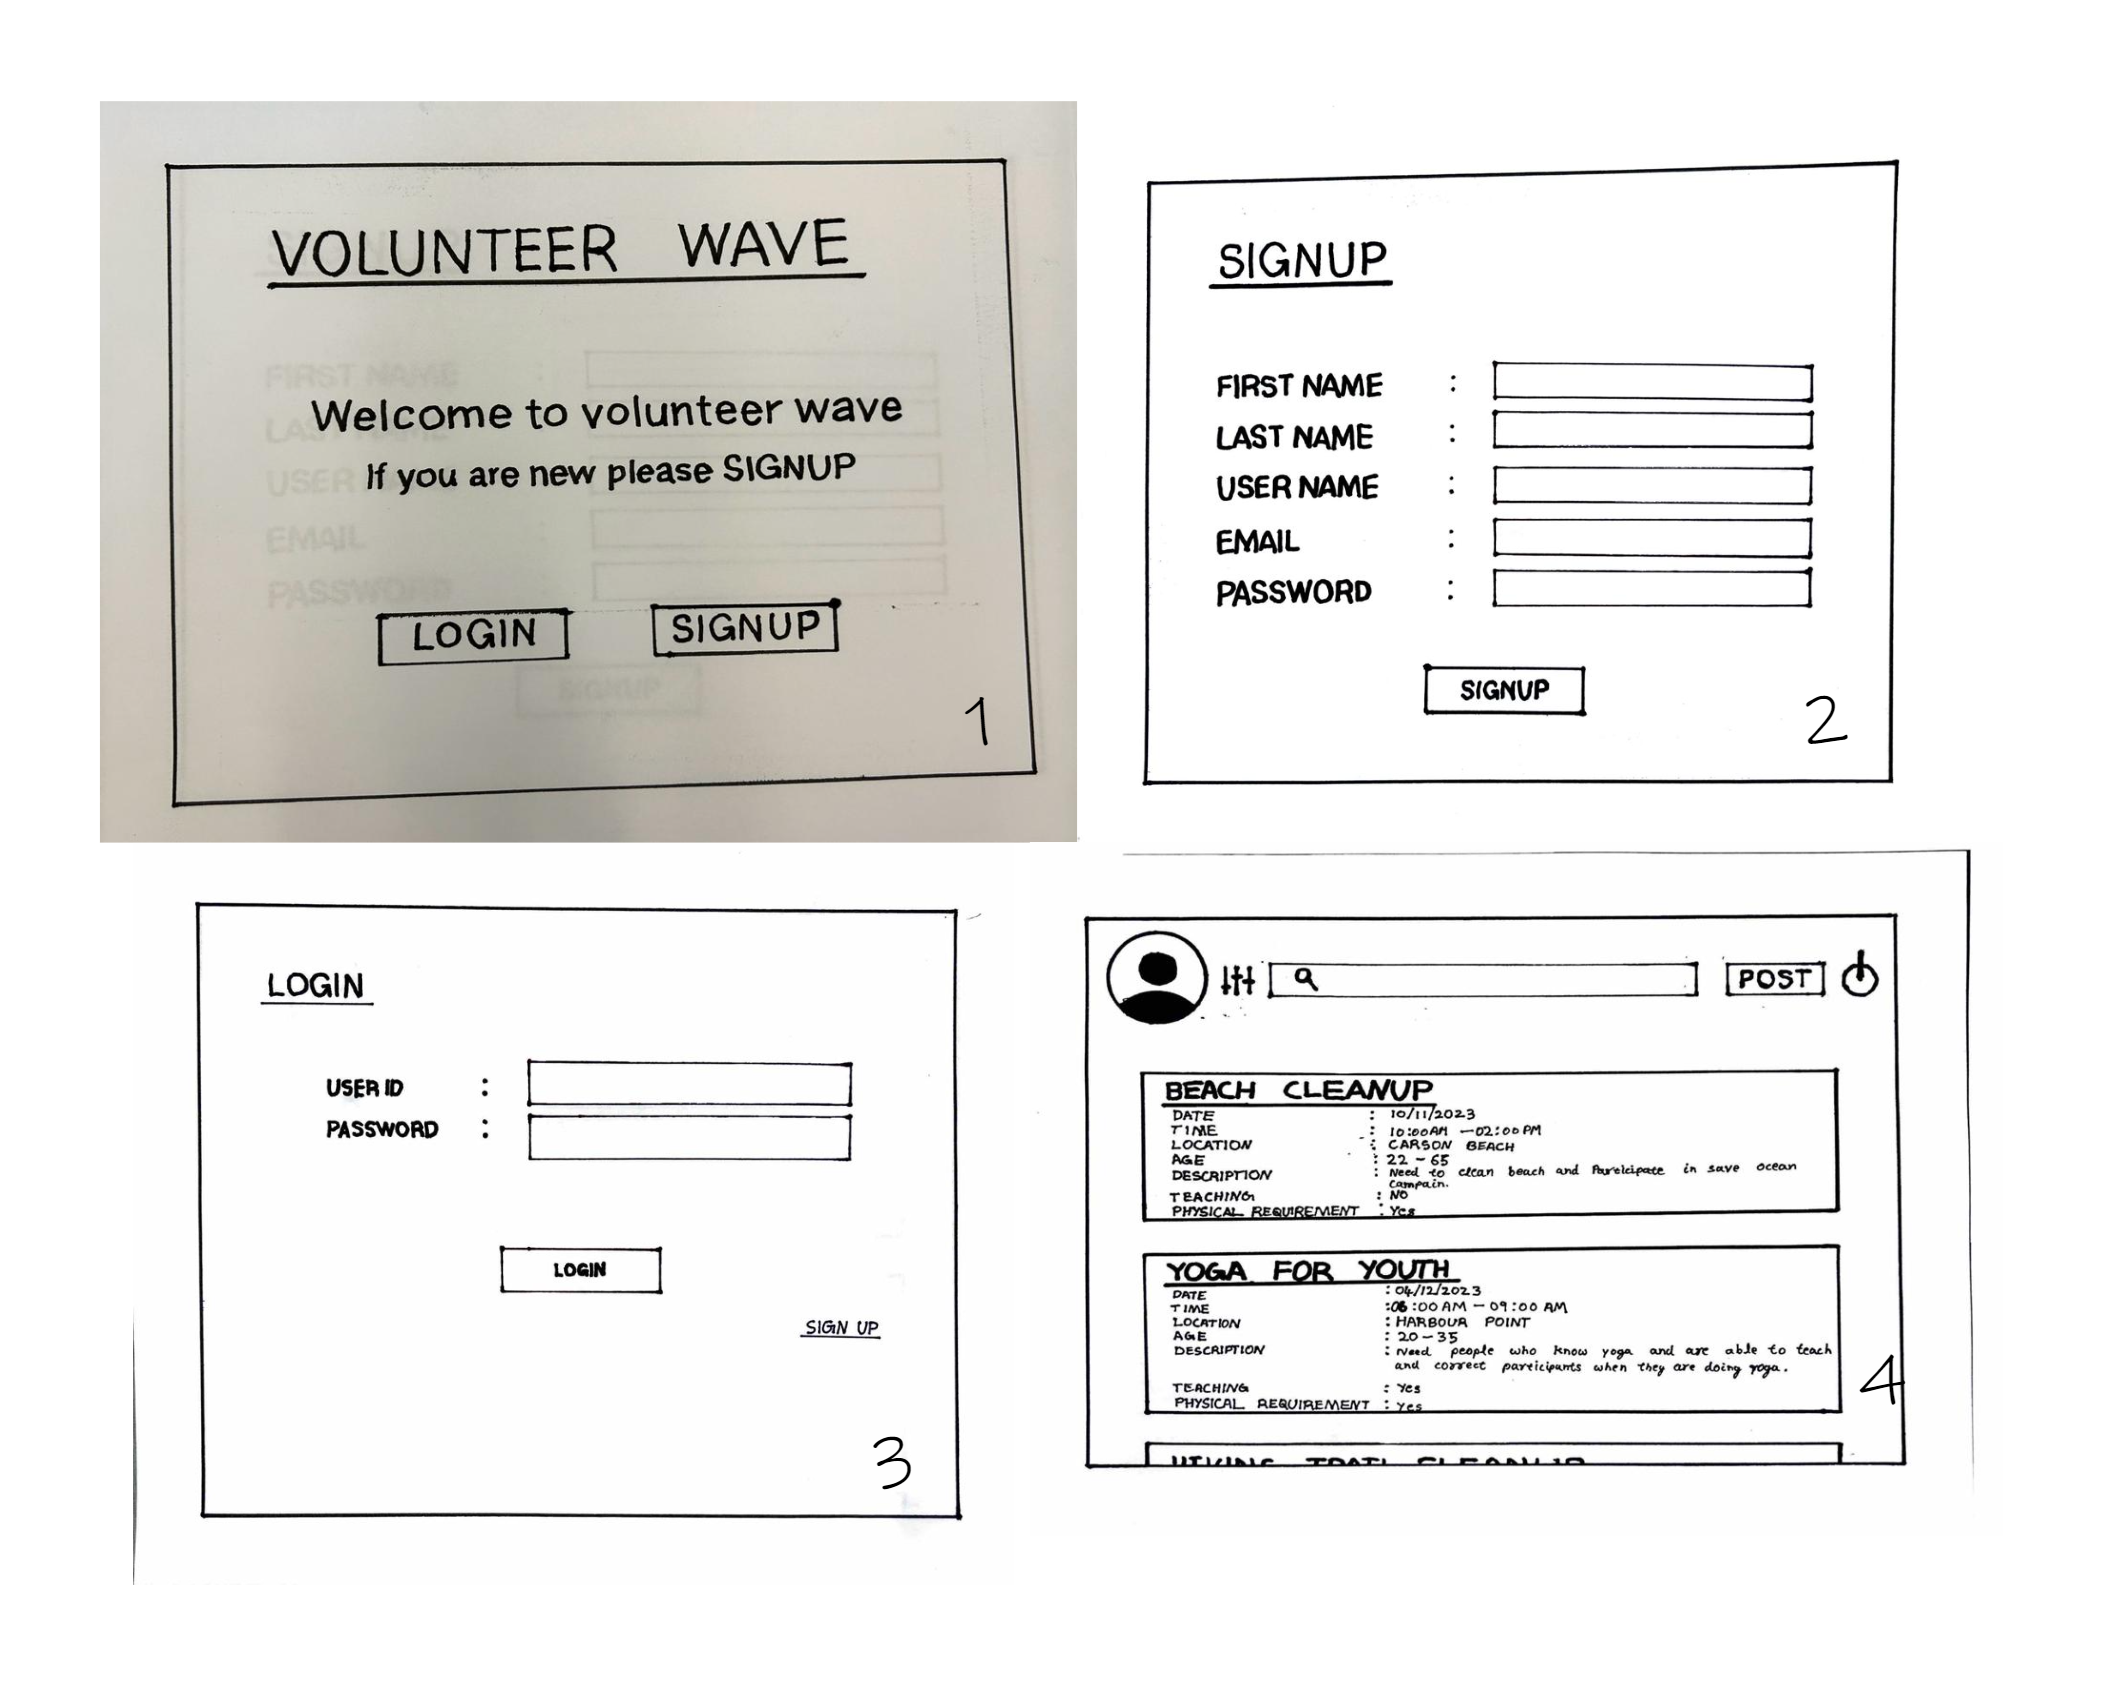 VOLUNTEER WAVE
Welcome to volunteer wave
If you are new please SIGNUP
LOGIN SIGNUP
1
SIGNUP
FIRST NAME :
LAST NAME :
USER NAME :
EMAIL :
PASSWORD :
SIGNUP
2
LOGIN
USER ID :
PASSWORD :
LOGIN
SIGN UP
3
POST
BEACH CLEANUP
DATE : 10/11/2023
TIME : 10:00AM - 02:00 PM
LOCATION : CARSON BEACH
AGE : 22 - 65
DESCRIPTION : Need to clean beach and Pareicipate in save ocean
Campain.
TEACHING : NO
PHYSICAL REQUIREMENT : Yes
YOGA FOR YOUTH
DATE : 04/12/2023
TIME : 06:00 AM - 09:00 AM
LOCATION : HARBOUR POINT
AGE : 20 - 35
DESCRIPTION : Need people who know yoga and are able to teach
and correct participants when they are doing yoga.
TEACHING : Yes
PHYSICAL REQUIREMENT : Yes
4
HIKING TRAIL CLEANUP